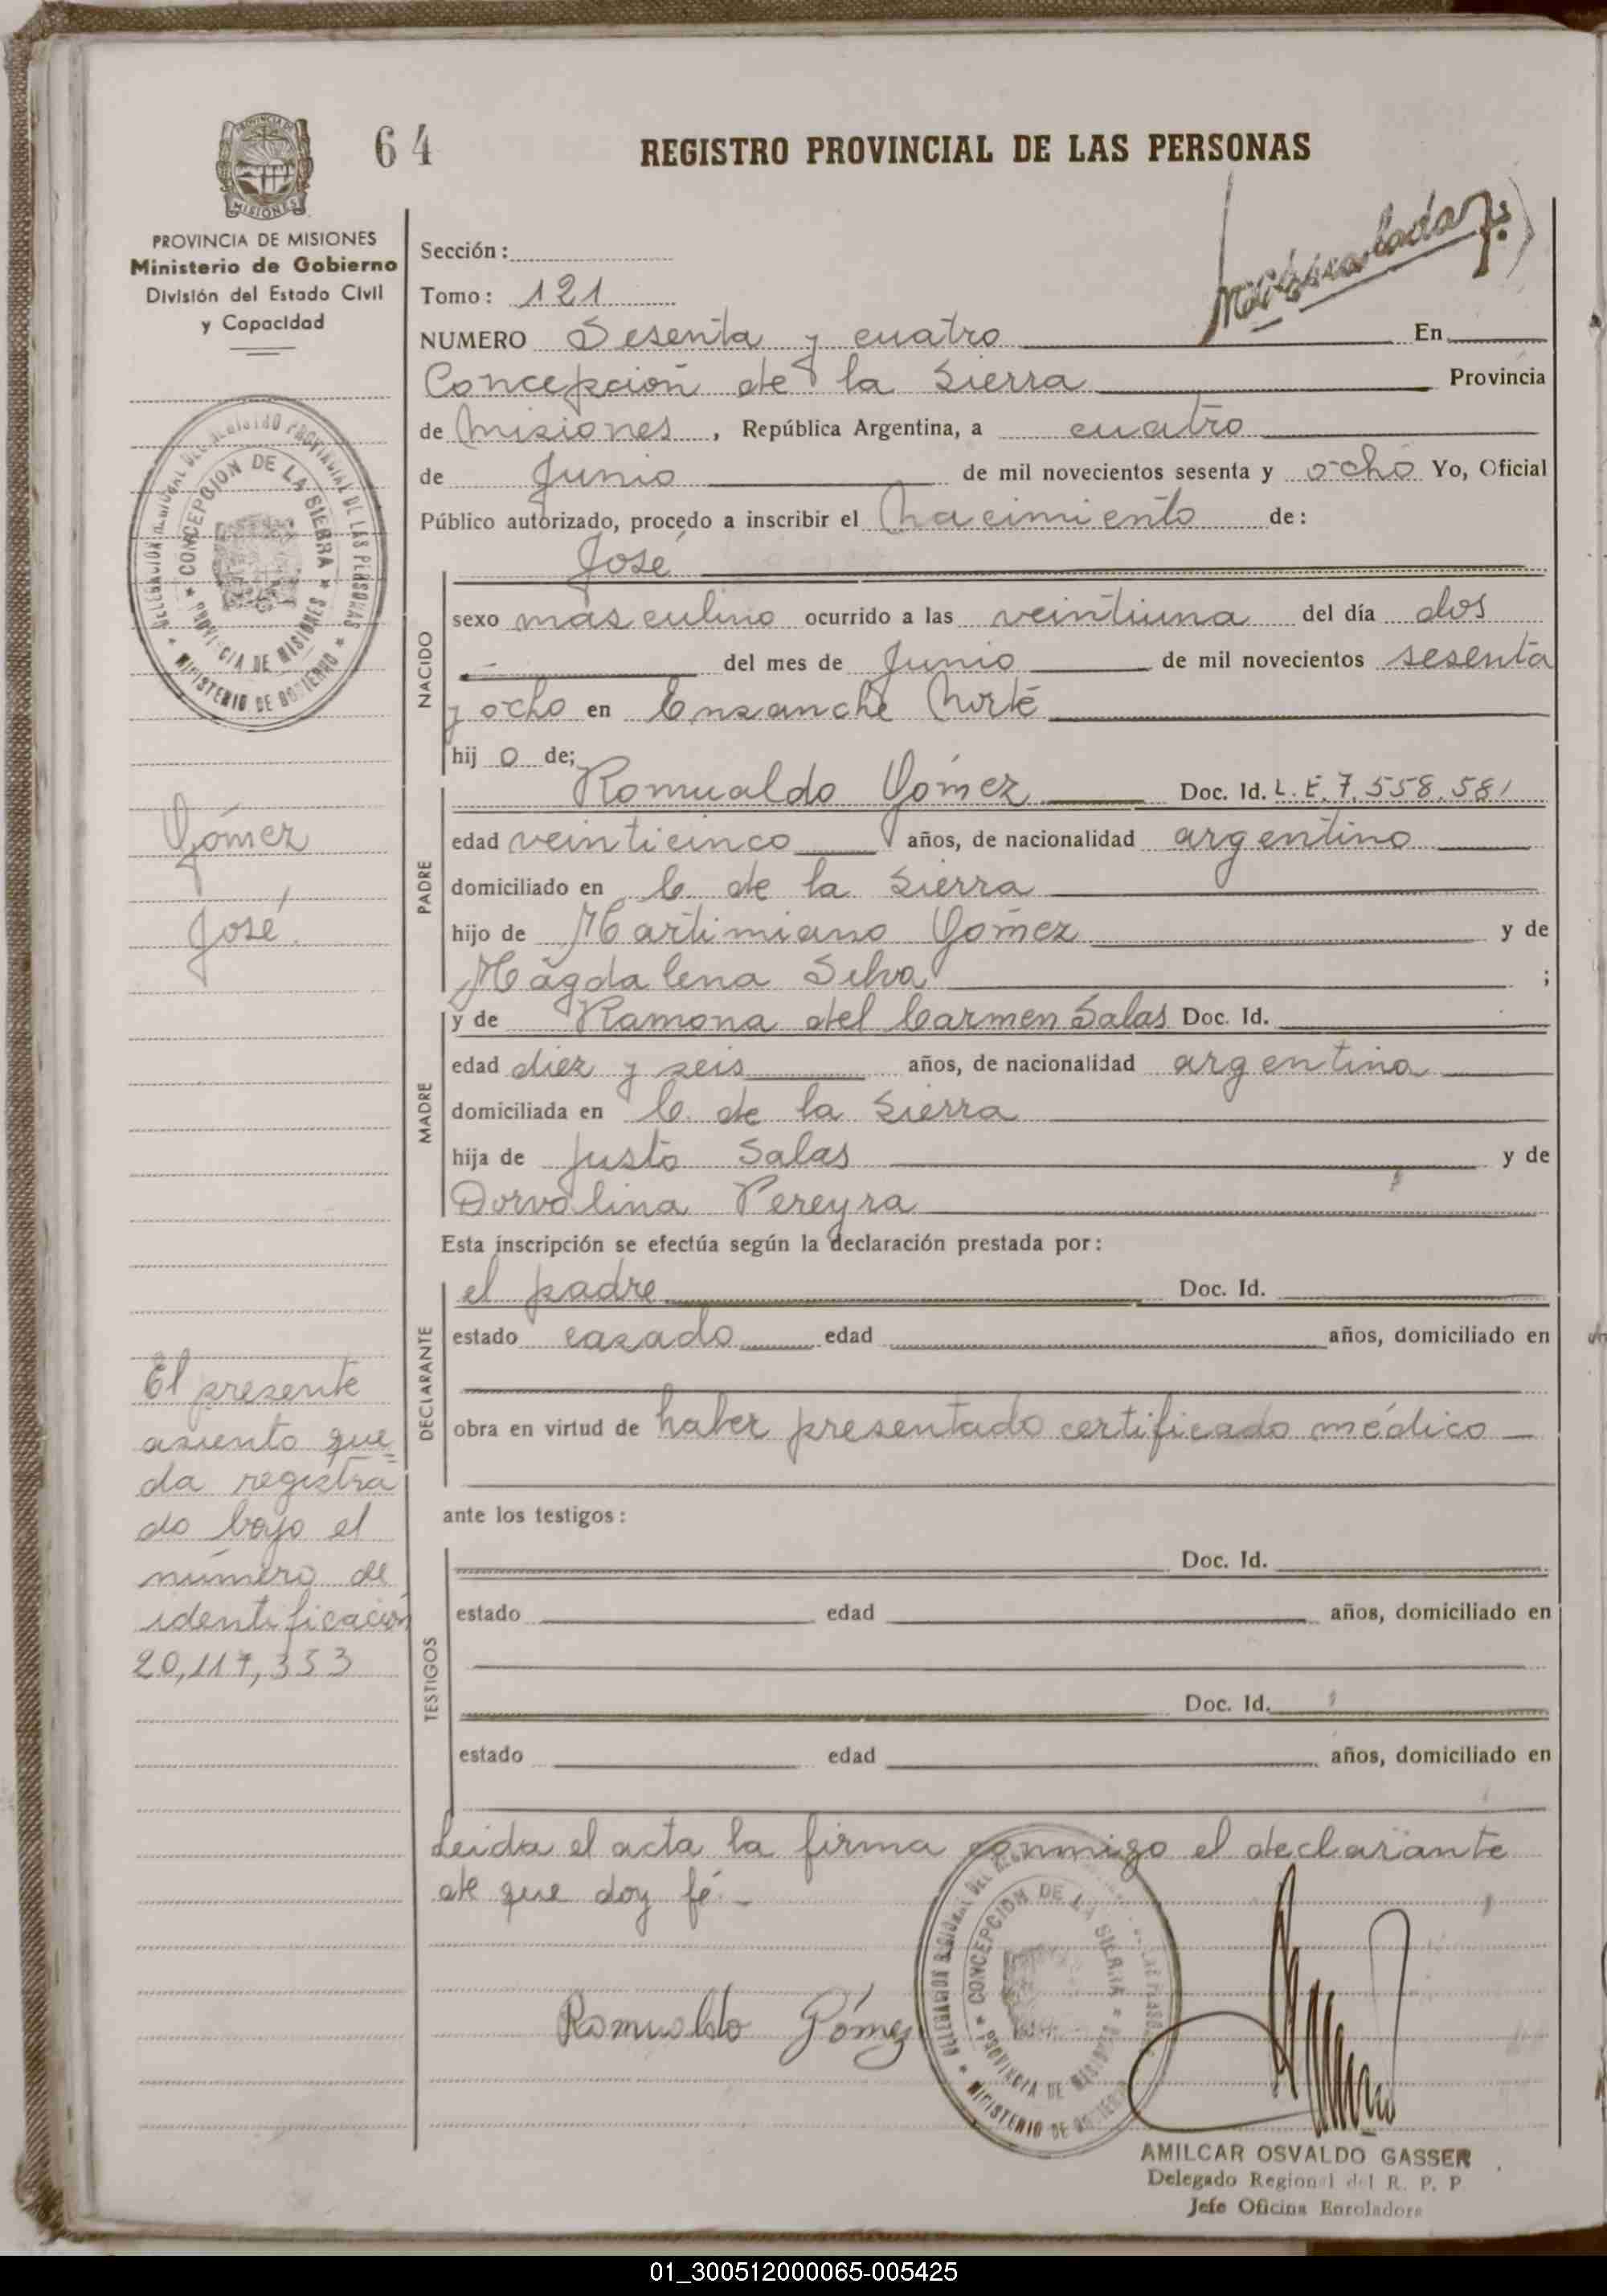 64
REGISTRO PROVINCIAL DE LAS PERSONAS
MISIONES
PROVINCIA DE MISIONES
Ministerio de Gobierno
División del Estado Civil
y Capacidad
Sección:
Tomo: 121
NUMERO Sesenta y cuatro En
Concepción de la Sierra Provincia
de Misiones, República Argentina, a cuatro
de Junio de mil novecientos sesenta y ocho Yo, Oficial
Público autorizado, procedo a inscribir el Nacimiento de:
José
NACIDO
sexo masculino ocurrido a las veintiuna del día dos
del mes de Junio de mil novecientos sesenta
y ocho en Ensanche Norte
hijo de;
PADRE
Romualdo Gómez Doc. Id. L.E. 7.558.581
edad veinticinco años, de nacionalidad argentino
domiciliado en C. de la Sierra
hijo de Martimiano Gómez y de
Mágdalena Silva ;
MADRE
y de Ramona del Carmen Salas Doc. Id.
edad diez y seis años, de nacionalidad argentina
domiciliada en C. de la Sierra
hija de Justo Salas y de
Dorvalina Pereyra
Esta inscripción se efectúa según la declaración prestada por:
DECLARANTE
el padre Doc. Id.
estado casado edad años, domiciliado en
obra en virtud de haber presentado certificado médico
ante los testigos:
TESTIGOS
Doc. Id.
estado edad años, domiciliado en
Doc. Id.
estado edad años, domiciliado en
Leida el acta la firma conmigo el declarante
de que doy fé
Romualdo Gómez
AMILCAR OSVALDO GASSER
Delegado Regional del R. P. P.
Jefe Oficina Enroladora
DELEGACION REGIONAL DEL REGISTRO PROVINCIAL DE LAS PERSONAS
CONCEPCION DE LA SIERRA
PROVINCIA DE MISIONES
MINISTERIO DE GOBIERNO
Gómez
José
El presente
asiento que=
da registra
do bajo el
número de
identificación
20,117,353
CONCEPCION DE LA SIERRA
PROVINCIA DE MISIONES
MINISTERIO DE GOBIERNO
01_300512000065-005425